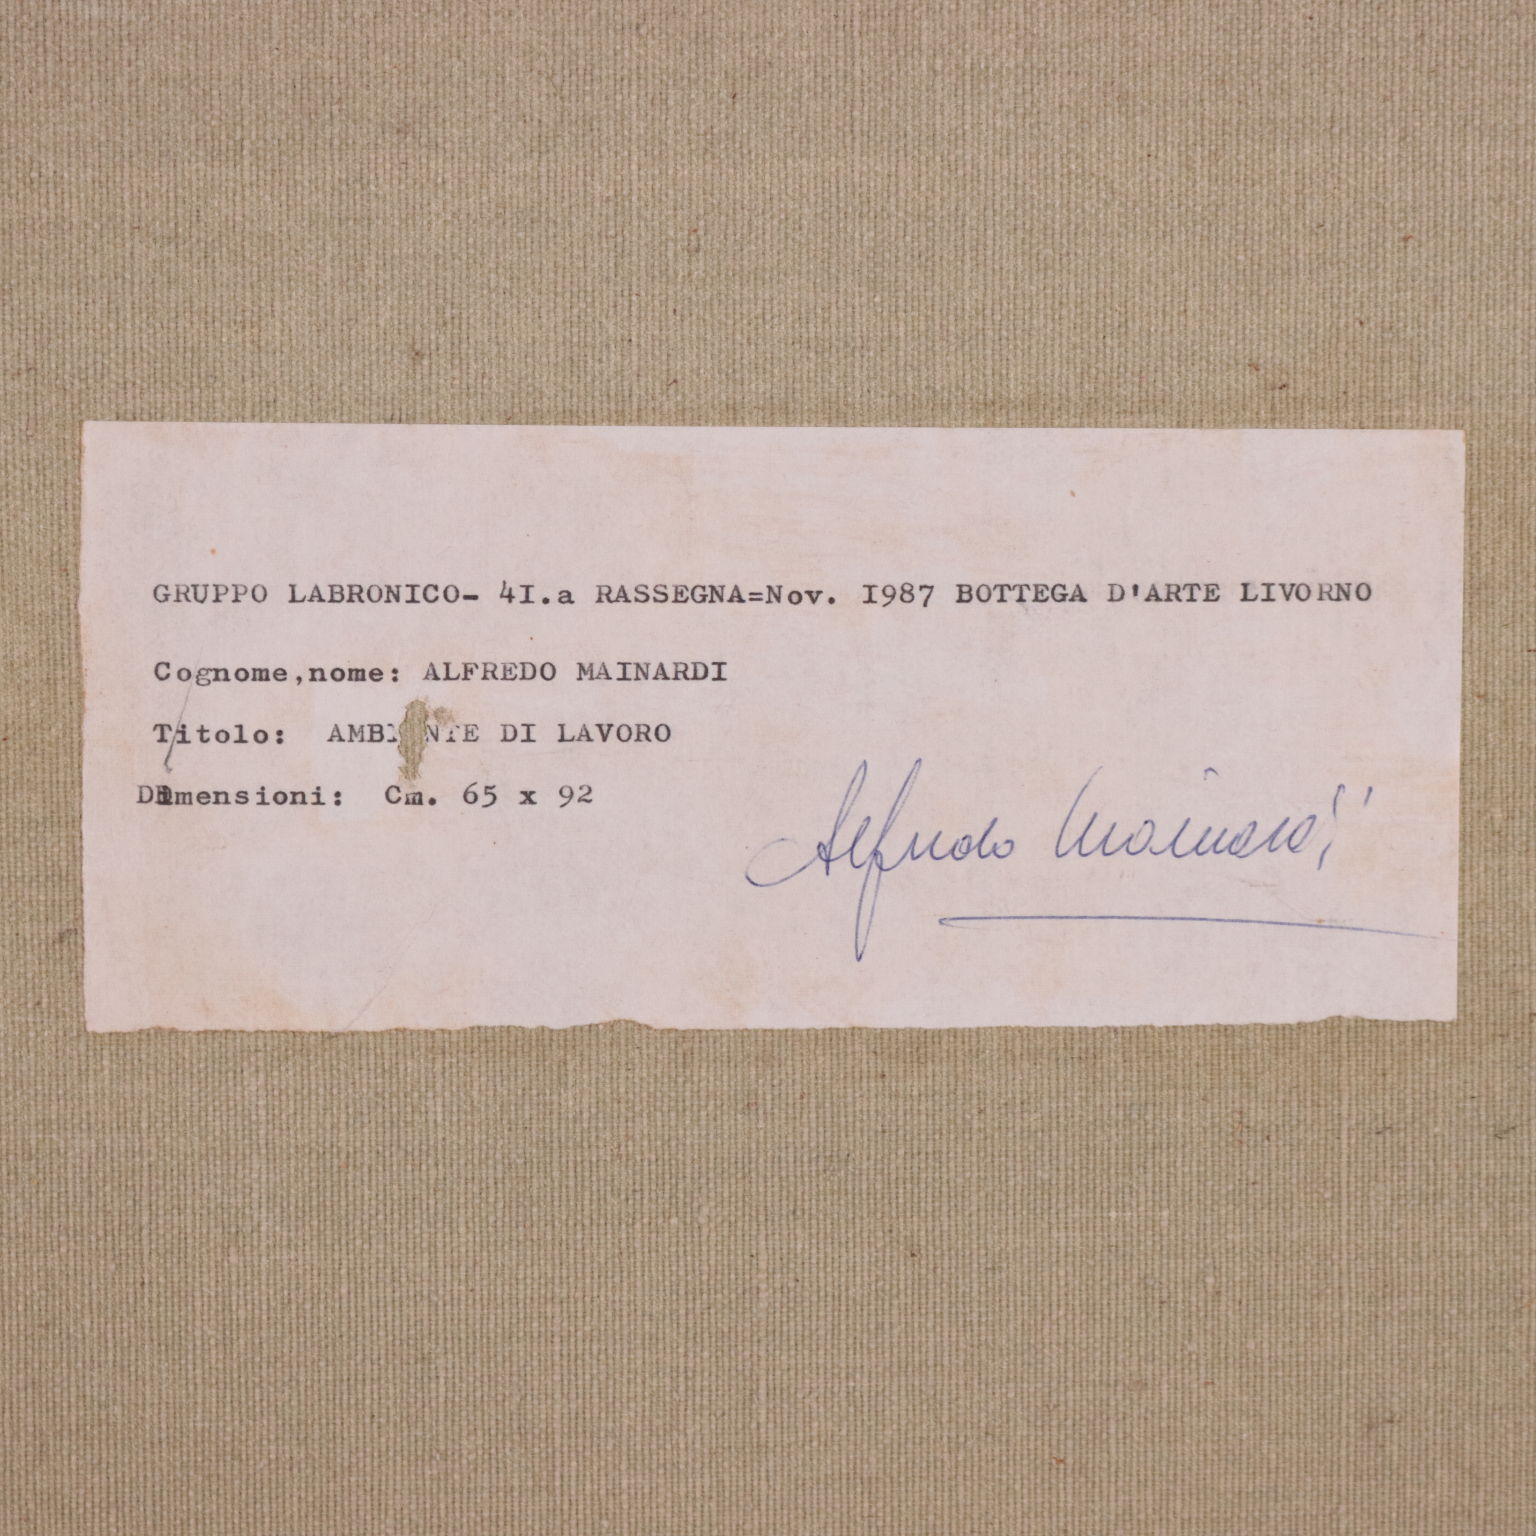 GRUPPO LABRONICO- 4I.a RASSEGNA=Nov. I987 BOTTEGA D'ARTE LIVORNO
Cognome,nome: ALFREDO MAINARDI
Titolo: AMBIENTE DI LAVORO
Dimensioni: Cm. 65 x 92
Alfredo Mainardi